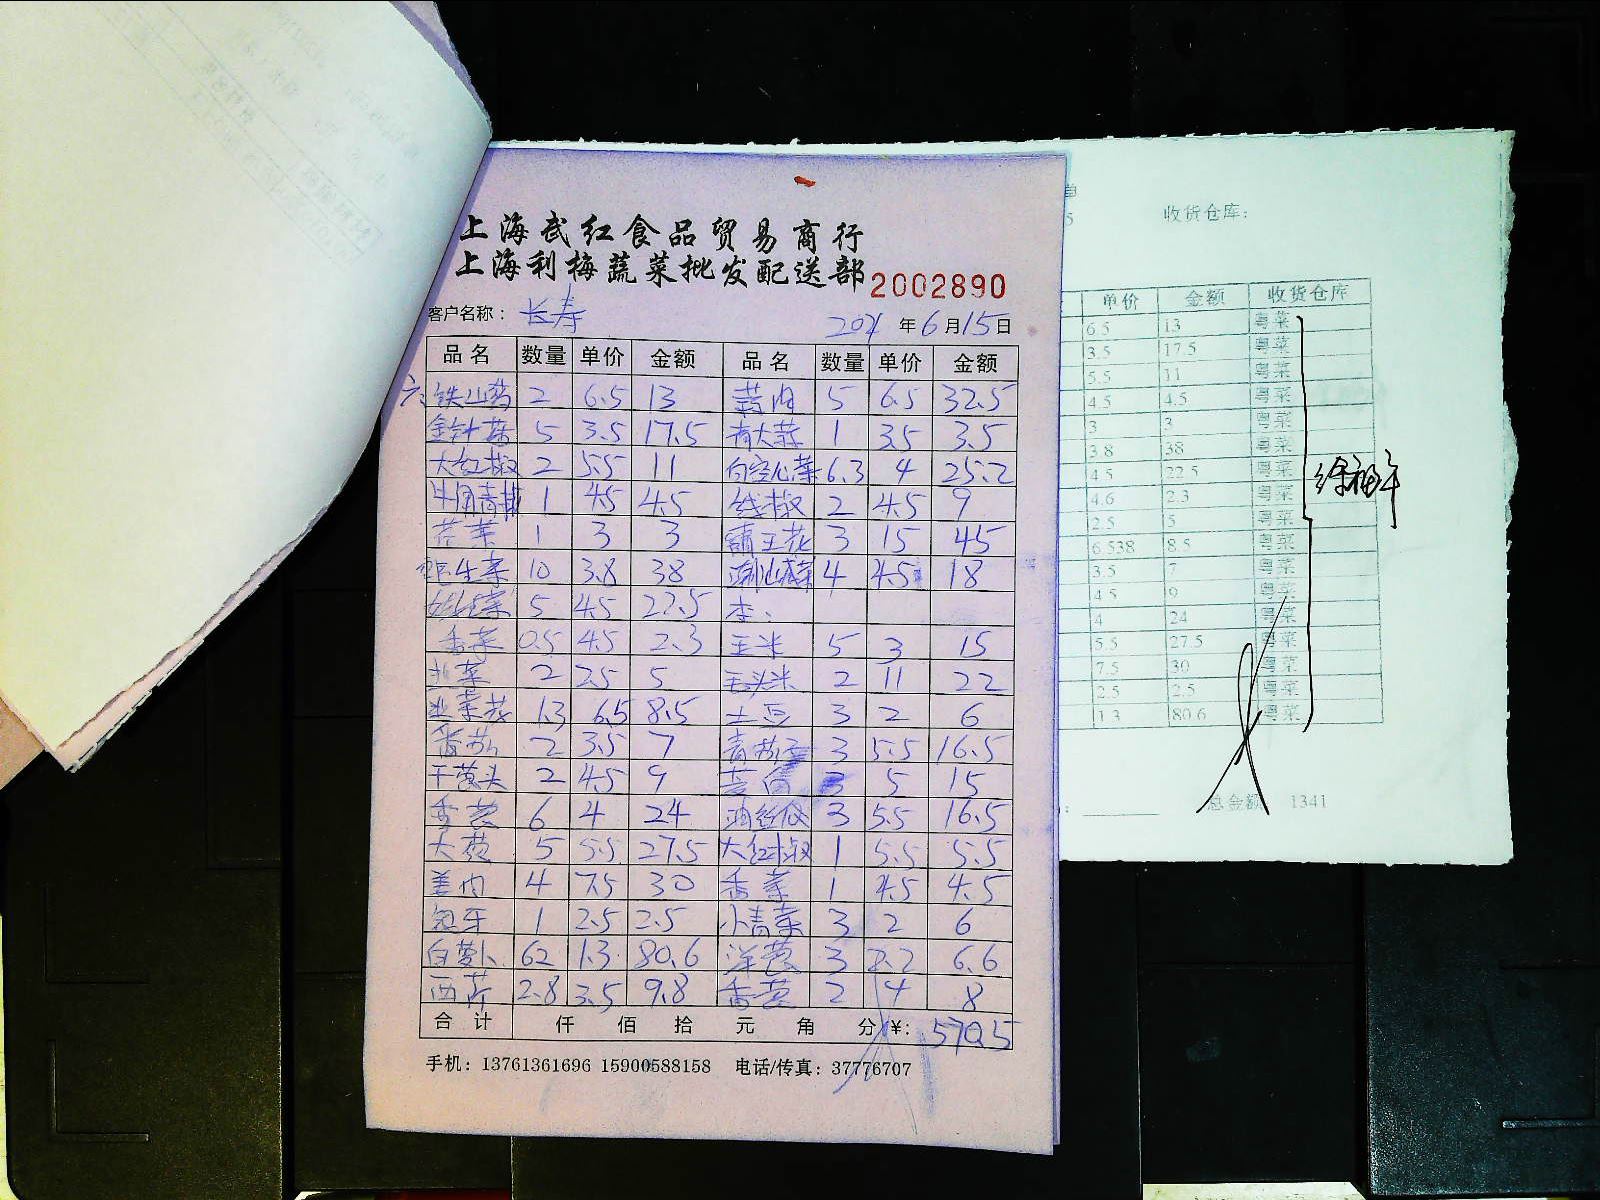 上海武红食品贸易商行
上海利梅蔬菜批发配送部 2002890
客户名称： 长寿 2021 年 6 月 15 日
品名 数量 单价 金额 品名 数量 单价 金额
铁山药 2 6.5 13 5 6.5 32.5
金针菇 5 3.5 17.5 1 3.5 3.5
大红椒 2 5.5 11 白空心菜 6.3 4 25.2
1 4.5 4.5 线椒 2 4.5 9
1 3 3 霸王花 3 15 45
生菜 10 3.8 38 4 4.5 18
5 4.5 22.5
香菜 0.5 4.5 2.3 玉米 5 3 15
韭菜 2 2.5 5 毛头米 2 11 22
韭菜花 1.3 6.5 8.5 土豆 3 2 6
2 3.5 7 3 5.5 16.5
干葱头 2 4.5 9 5 15
香葱 6 4 24 3 5.5 16.5
大葱 5 5.5 27.5 大红椒 1 5.5 5.5
姜肉 4 7.5 30 香菜 1 4.5 4.5
1 2.5 2.5 小青菜 3 2 6
白萝卜 62 1.3 80.6 洋葱 3 2.2 6.6
西芹 2.8 3.5 9.8 香葱 2 4 8
合计 仟 佰 拾 元 角 分 ¥: 570.5
手机：13761361696 15900588158 电话/传真：37776707
单
5 收货仓库:
单价 金额 收货仓库
6.5 13 粤菜
3.5 17.5 粤菜
5.5 11 粤菜
4.5 4.5 粤菜
3 3 粤菜
3.8 38 粤菜
4.5 22.5 粤菜
4.6 2.3 粤菜
2.5 5 粤菜
6.538 8.5 粤菜
3.5 7 粤菜
4.5 9 粤菜
4 24 粤菜
5.5 27.5 粤菜
7.5 30 粤菜
2.5 2.5 粤菜
1.3 80.6 粤菜
总金额 1341